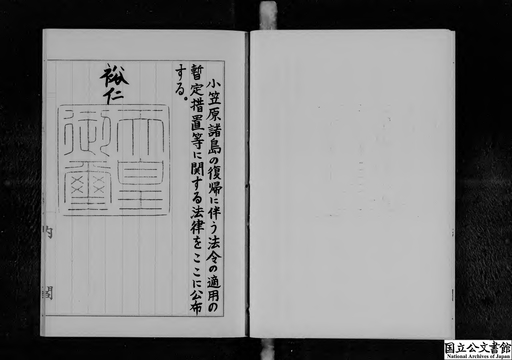 小笠原諸島の復帰に伴う法令の適用の
暫定措置等に関する法律をここに公布
する。
裕仁
天皇
御璽
内閣
国立公文書館
National Archives of Japan